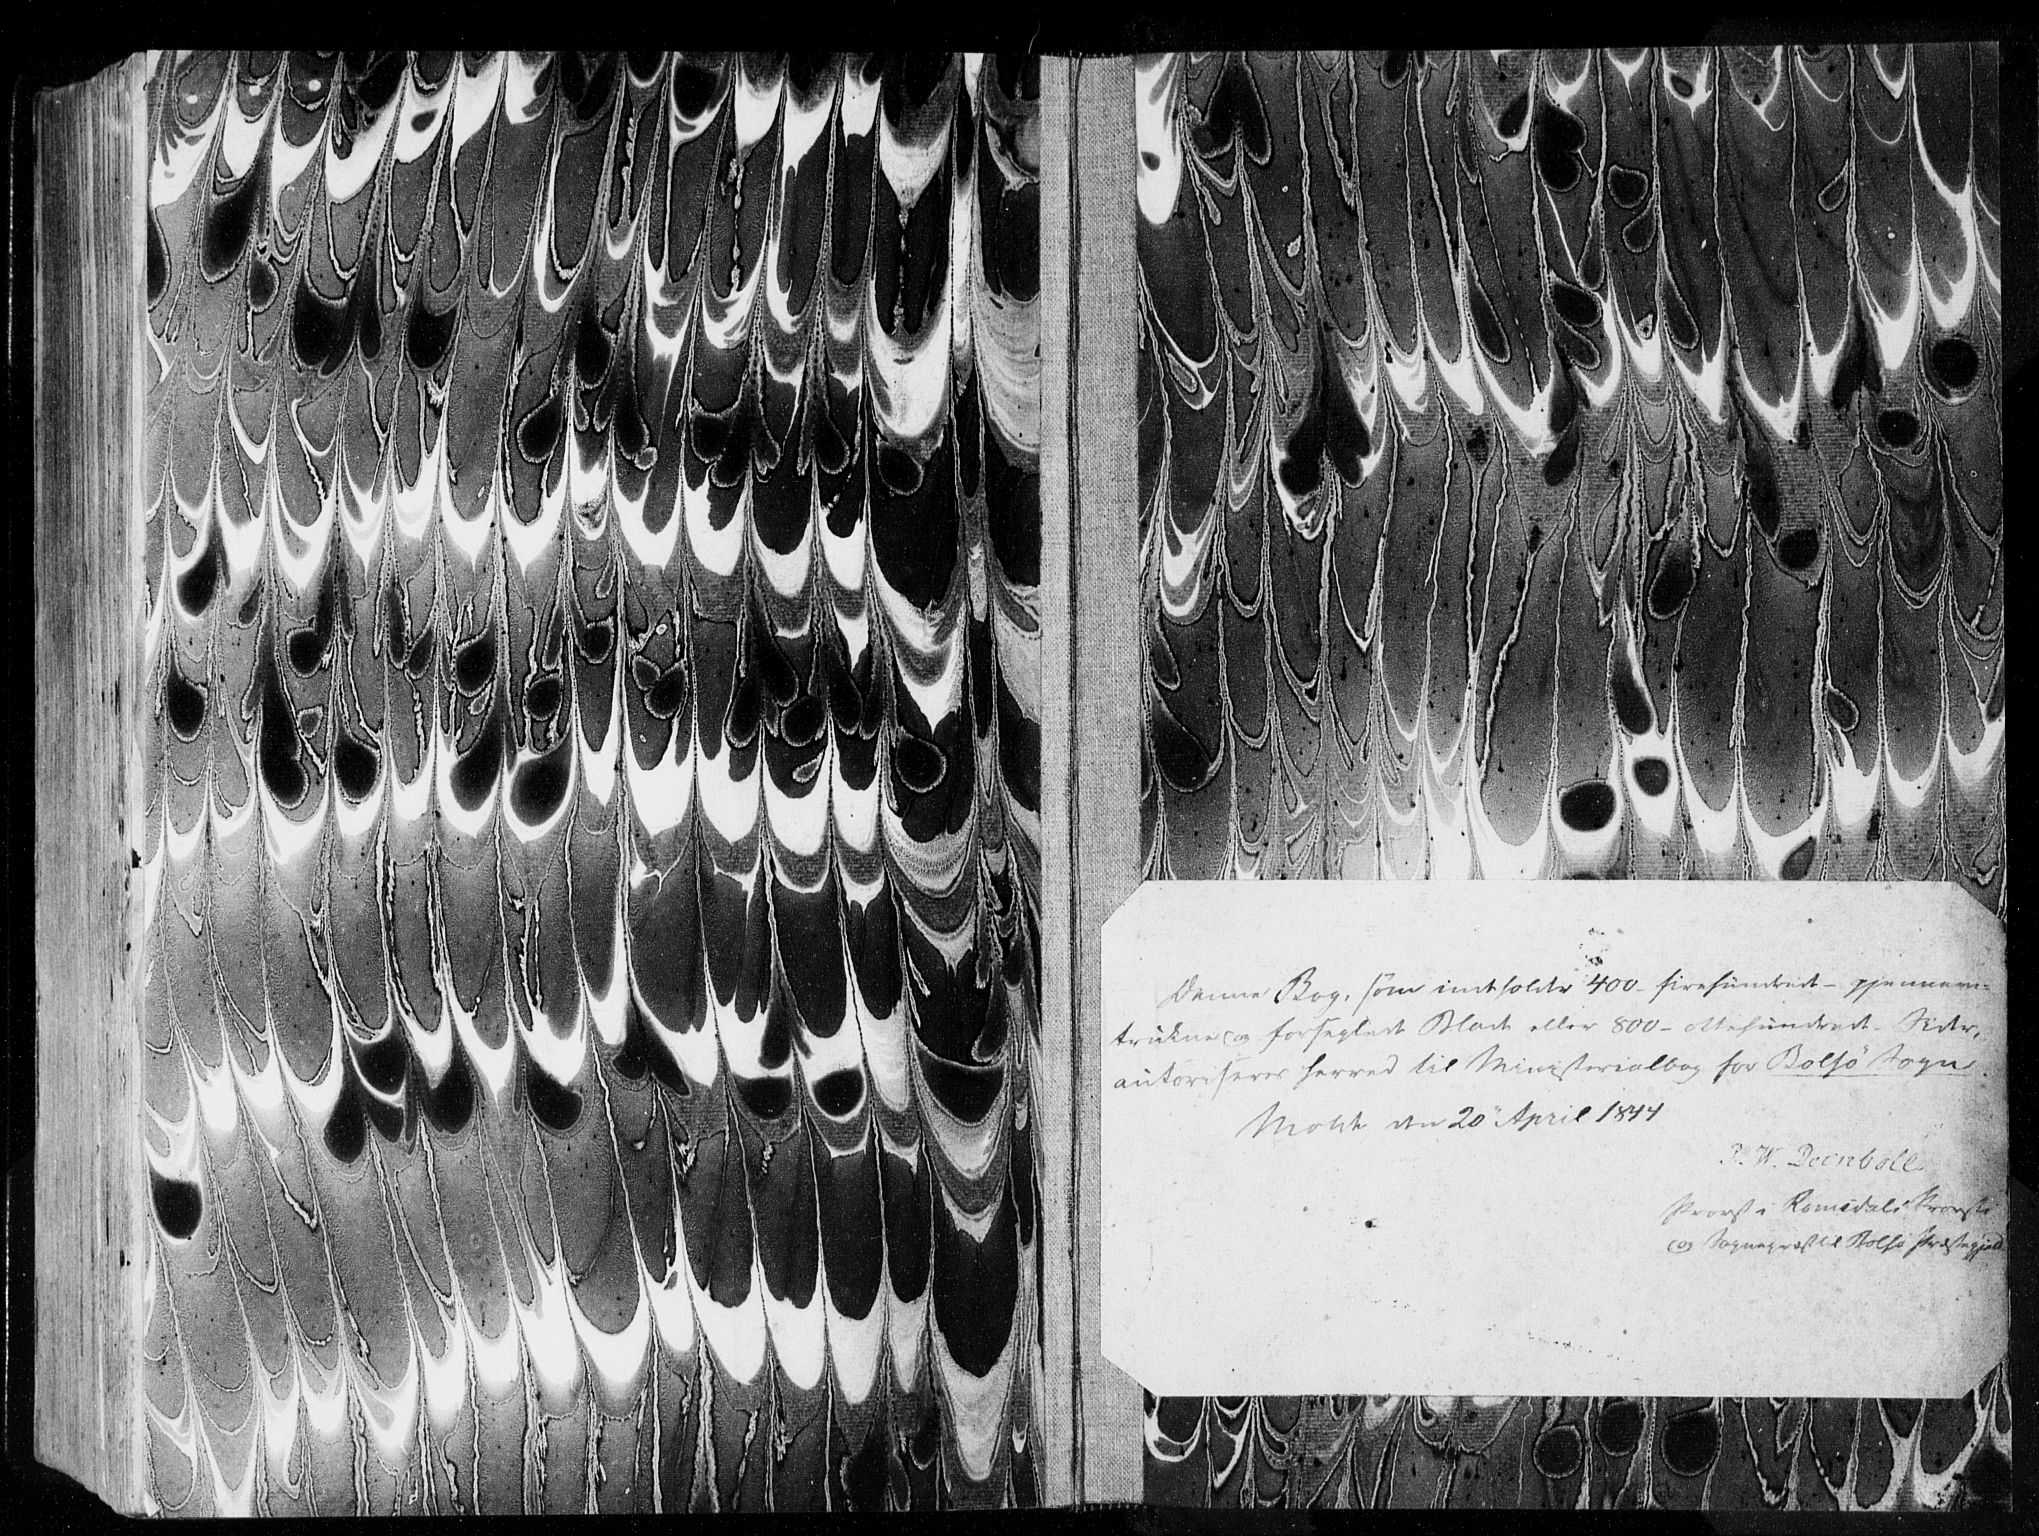 Denne Bog, som indeholder 400 - firehundrede - gjennem-
trukne og forseglede Blade eller 800 - ottehundrede - Sider,
autoriseres herved til Ministerialbog for Bolsö Sogn.
Molde den 20 April 1844
P. W. Deinboll
Provst i Romsdals Provsti
og Sognepræst til Bolsö Præstegjeld